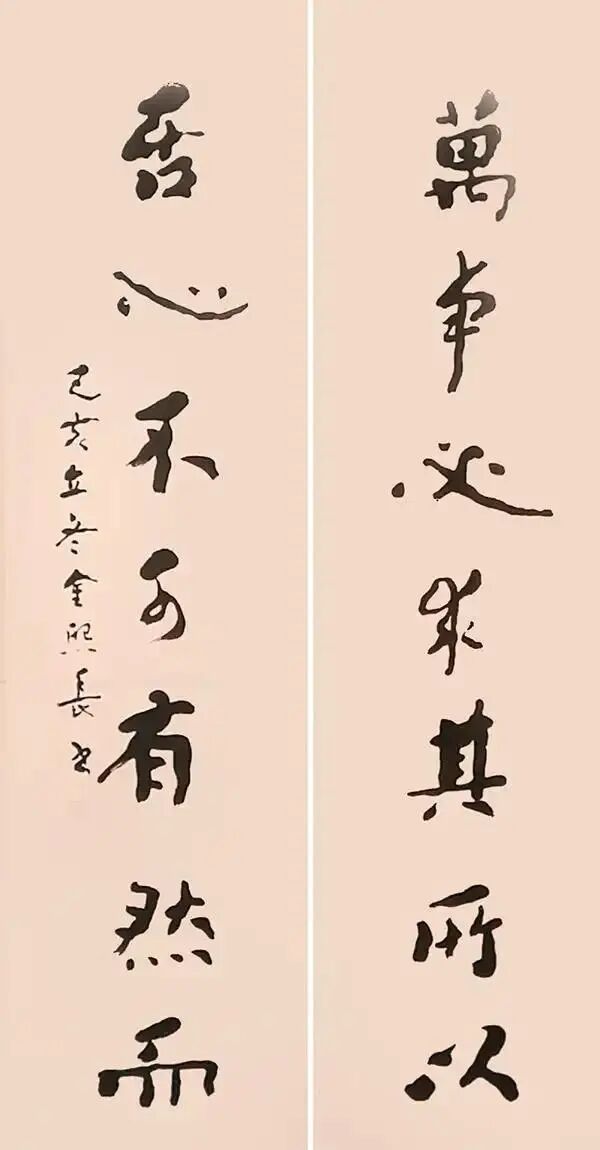 萬事必求其所以
吾心不可有然而
己亥立冬金煕長書